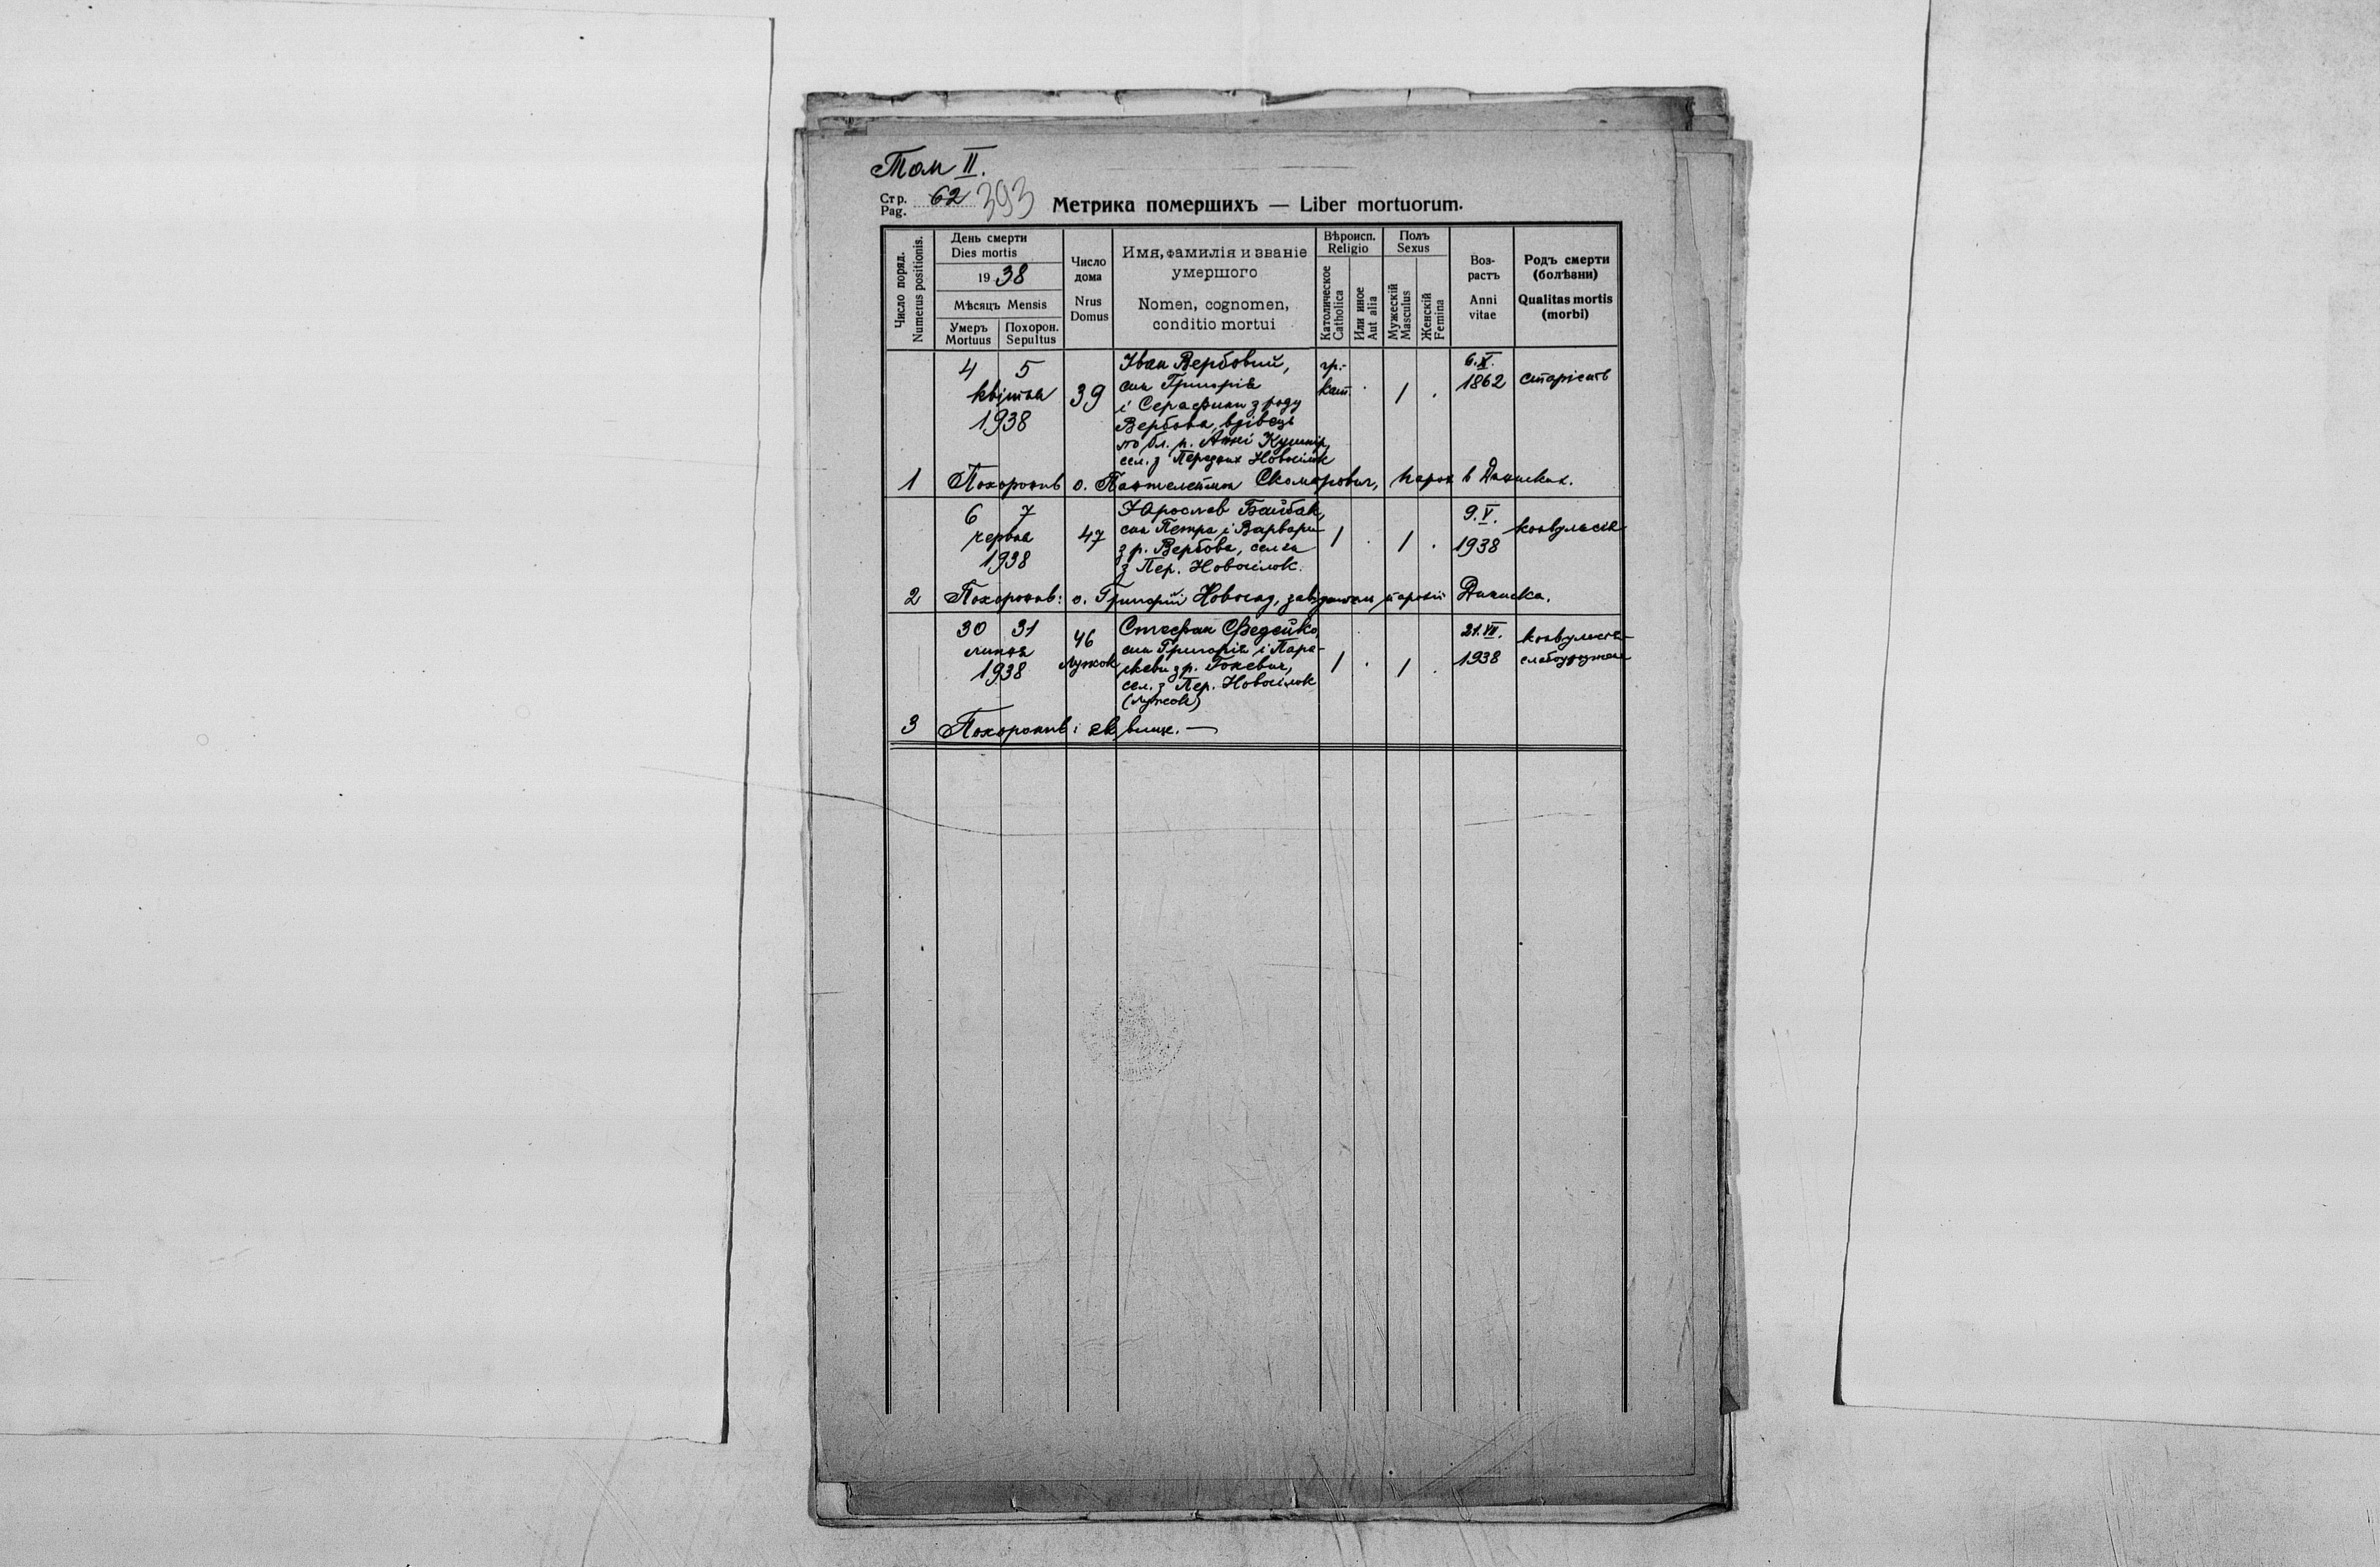 Том II.
Стр. 62 393
Pag.
Метрика померших — Liber mortuorum.
Число поряд.
Numerus positionis.
День смерти
Dies mortis
19 38
Мѣсяцъ Mensis
Умеръ
Mortuus
Похорон.
Sepultus
Число
дома
Nrus
Domus
Имя, фамилія и званіе
умершого
Nomen, cognomen,
conditio mortui
Вѣроисп.
Religio
Католическое
Catholica
Или иное
Aut alia
Полъ
Sexus
Мужескій
Masculus
Женскій
Femina
Воз-
растъ
Anni
vitae
Родъ смерти
(болѣзни)
Qualitas mortis
(morbi)
4 5
квітня
1938
39
Іван Вербовий,
син Григорія
і Серафини з роду
Вербова, вдівець
по бл. п. Анні Кушнір,
сел. з Передних Новосілок
гр.-
кат.
1
6.X.
1862
старість
1 Похоронив о. Пантелеймон Скоморович, парох в
6 7
червня
1938
47
Ярослав Байбак,
син Петра і Варвари
з р. Вербова, селян
з Пер. Новосілок.
1
1
9.V.
1938
конвульсія
2 Похоронив: о. Григорій завідатель парохії
30 31
липня
1938
46
Лужок
Стефан Федейко,
син Григорія і Пара-
скеви з р.
сел. з Пер. Новосілок
(Лужок)
1
1
21.VII.
1938
конвульсія
3 Похоронив: як вище. —